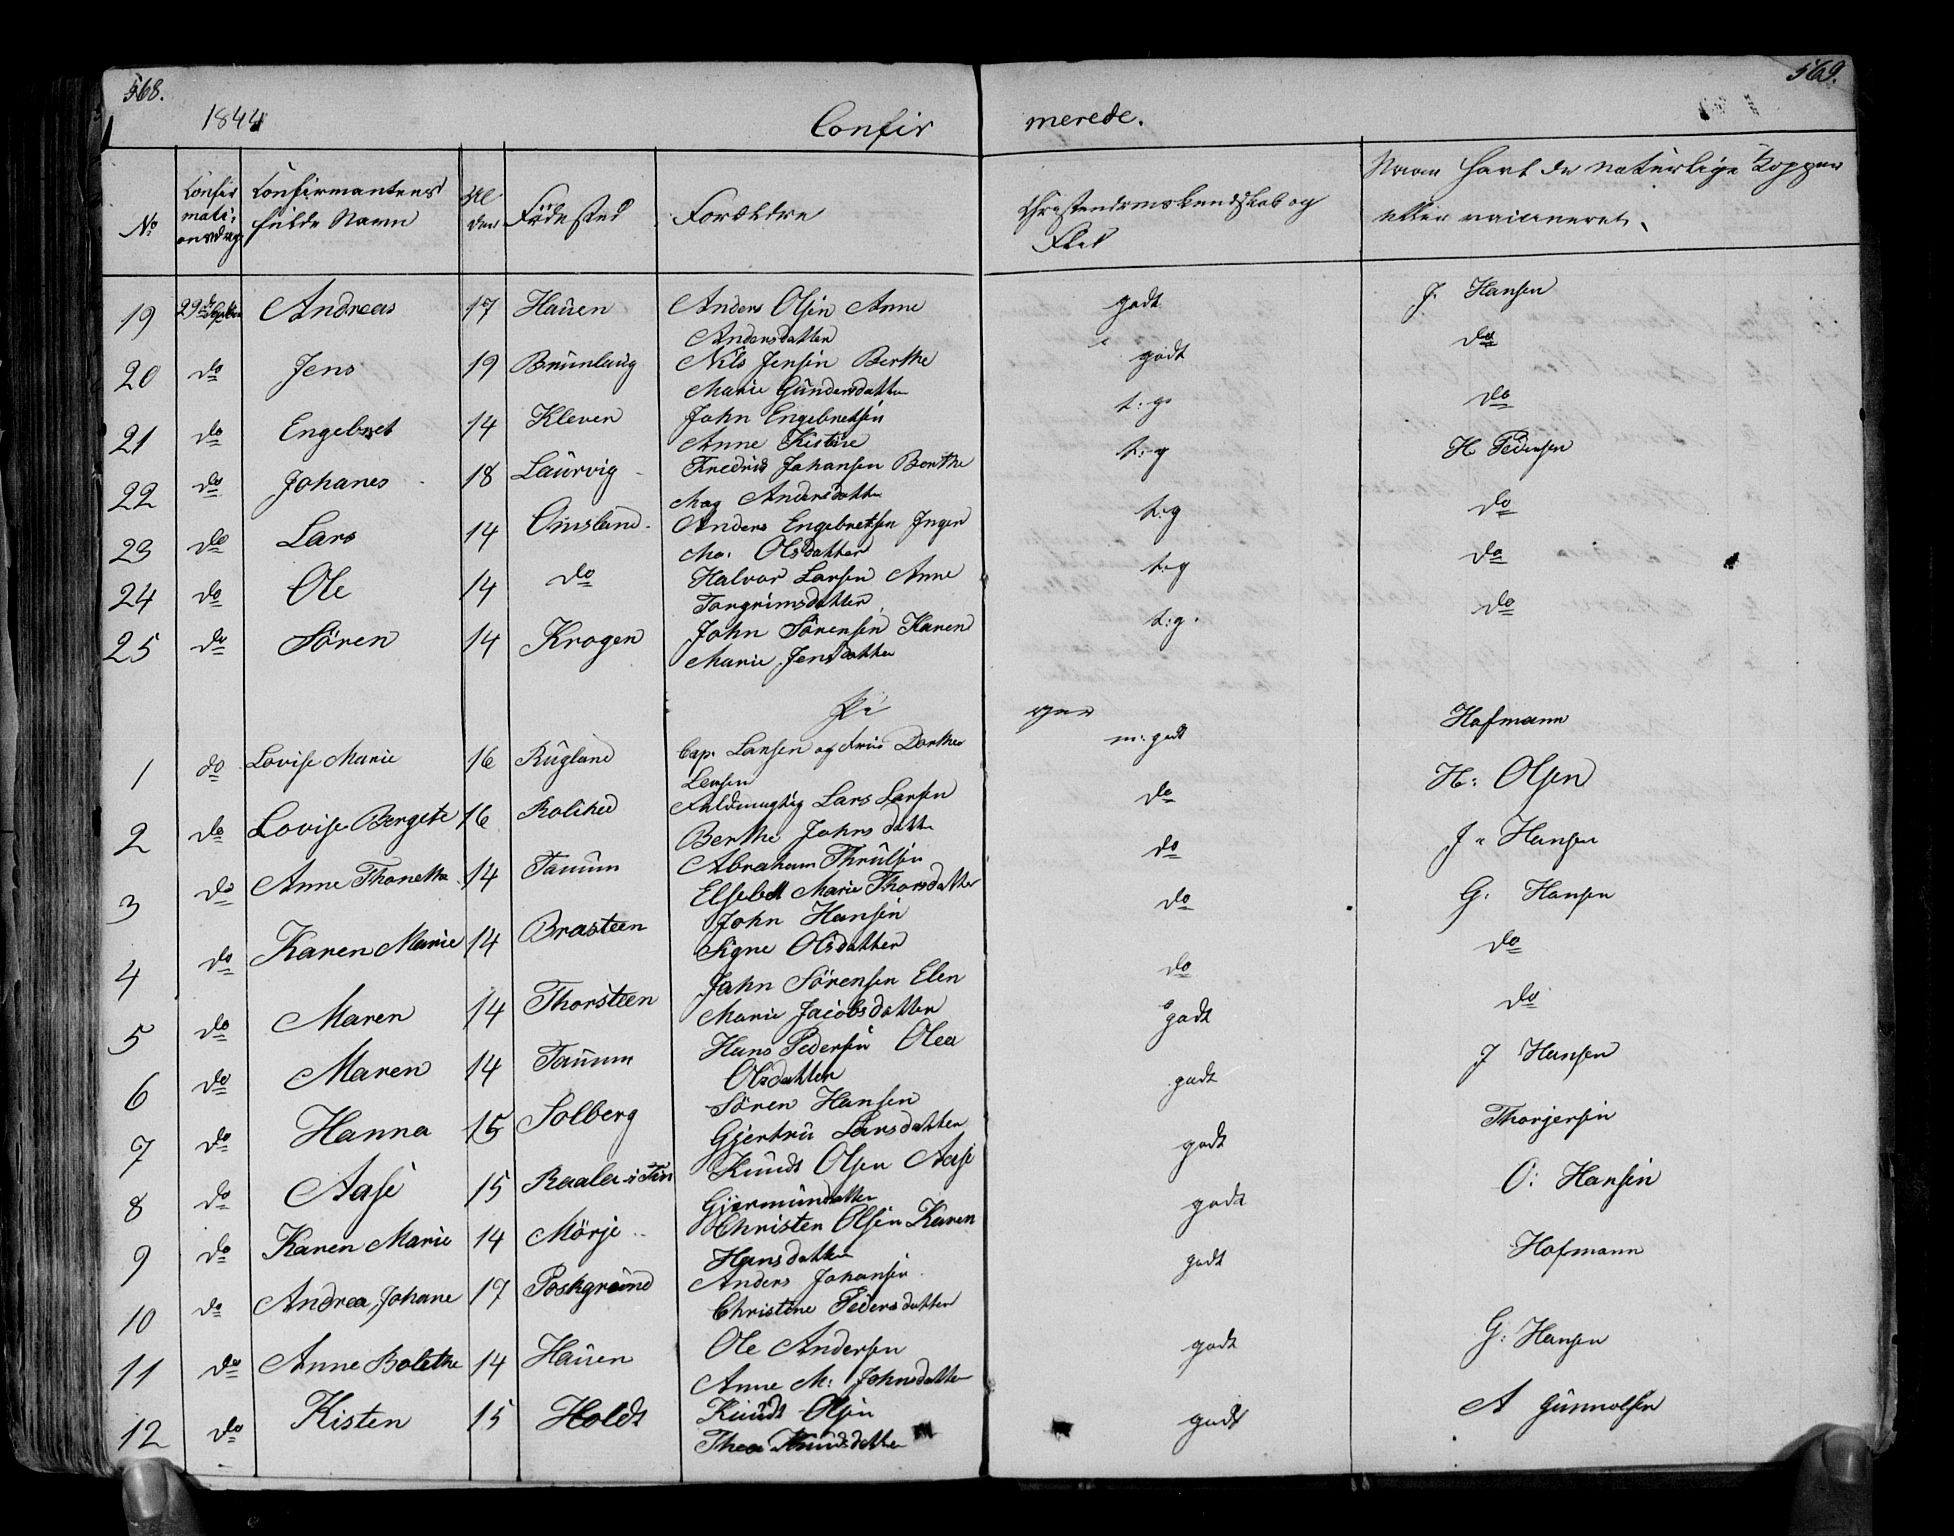 568.
569.
1844
Confir merede.
No
Confir mati: onsdag
Confirmantens fulde Navn
Al der
Födested
Forældre
Christendomskundskab og Flid
Naar havt de naturlige Kopper eller vaicineret.
19 29de Andreas 17 Hauen Anders Olsen Anne Andersdatter godt J. Hansen
20 do Jens 19 Brunlaug Nils Jensen Berthe Marie Gundersdatter godt do
21 do Engebret 14 Kleven John Engebretsen Anne Kistine t:g. do
22 do Johanes 18 Laurvig Fredrik Johansen Berthe Mag Andersdatter t:g H Pedersen
23 do Lars 14 Omsland Anders Engebretsen Inger Ma: Olsdatter t:g do
24 do Ole 14 do Halvor Larsen Anne Torgrimsdatter t:g do
25 do Sören 14 Krogen John Sörensen Karen Marie Jensdatter t:g. do
Pi ger
1 do Lovise Marie 16 Rugland Cap. Larsen og Frue Dorthea Larsen m: godt Hofmann
2 do Lovise Bergete 16 Rolihed Lars Larsen Berthe Johnsdatter do H: Olsen
3 do Anne Thonette 14 Tanum Abraham Thrulsen Elsebet Marie Thorsdatter do J. Hansen
4 do Karen Marie 14 Brasteen John Hansen Signe Olsdatter do G: Hansen
5 do Maren 14 Thorsteen John Sörensen Elen Marie Jacobsdatter do do
6 do Maren 14 Tanum Hans Pedersen Olea Olsdatter godt do
7 do Hanna 15 Solberg Sören Hansen Gjertru Larsdatter godt J Hansen
8 do Aase 15 Knuds Olsen Aase Gjermundatter godt Thorjersen
9 do Karen Marie 14 Mörje Christen Olsen Karen Hansdatter godt O: Hansen
10 do Andrea Johane 17 Poshgrund Anders Johansen Christine Pedersdatter godt Hofmann
11 do Anne Bolethe 14 Hauen Ole Andersen Anne M: Johnsdatter godt G: Hansen
12 do Kisten 15 Holdt Knudt Olsen Thea Knudsdatter godt A Gunnolsen